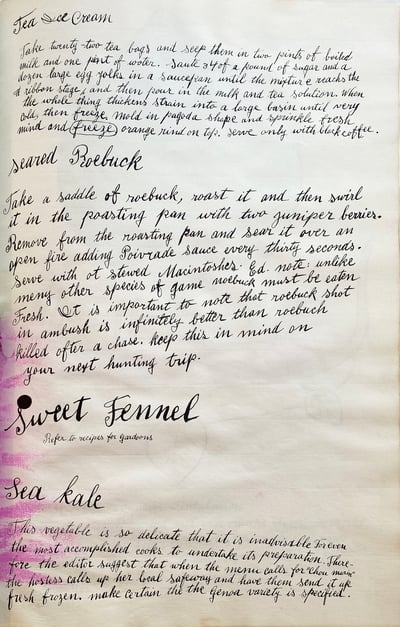 Tea Ice Cream
Take twenty-two tea bags and seep them in two pints of boiled
milk and one pint of water. Sauté 3/4 of a pound of sugar and a
dozen large egg yolks in a saucepan until the mixture reaches the
ribbon stage, and then pour in the milk and tea solution. When
the whole thing thickens strain into a large basin until very
cold, then freeze. Mold in pagoda shape and sprinkle fresh
mind and freeze orange rind on top. Serve only with black coffee.
Seared Roebuck
Take a saddle of roebuck, roast it and then swirl
it in the poasting pan with two juniper berries.
Remove from the roasting pan and sear it over an
open fire adding Poivrade sauce every thirty seconds.
Serve with ot stewed Macintoshes. Ed. note: unlike
meny other species of game roebuck must be eaten
Fresh. It is important to note that roebuck shot
in ambush is infinitely better than roebuch
killed after a chase. Keep this in mind on
your next hunting trip.
Sweet Fennel
Refer to recipes for Gardoons
Sea kale
This vegetable is so delicate that it is inadvisable for even
the most accomplished cooks to undertake its preparation. There-
fore the editor suggest that when the menu calls for "Chou marin"
the hostess calls up her local safeway and have them send it up
fresh frozen. Make certain the the Genoa variety is specified.